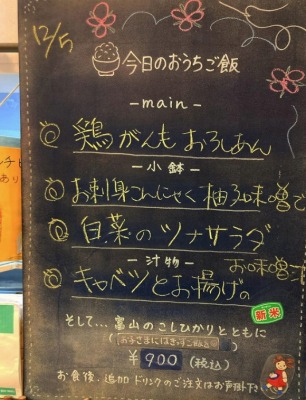 12/5
今日のおうちご飯
-main-
鶏がんもおろしあん
-小鉢-
お刺身こんにゃく柚子味噌で
白菜のツナサラダ
-汁物-
キャベツとお揚げの
お味噌汁
新米
そして...富山のこしひかりとともに
¥900(税込)
お食後、追加ドリンクのご注文はお声掛け下さい